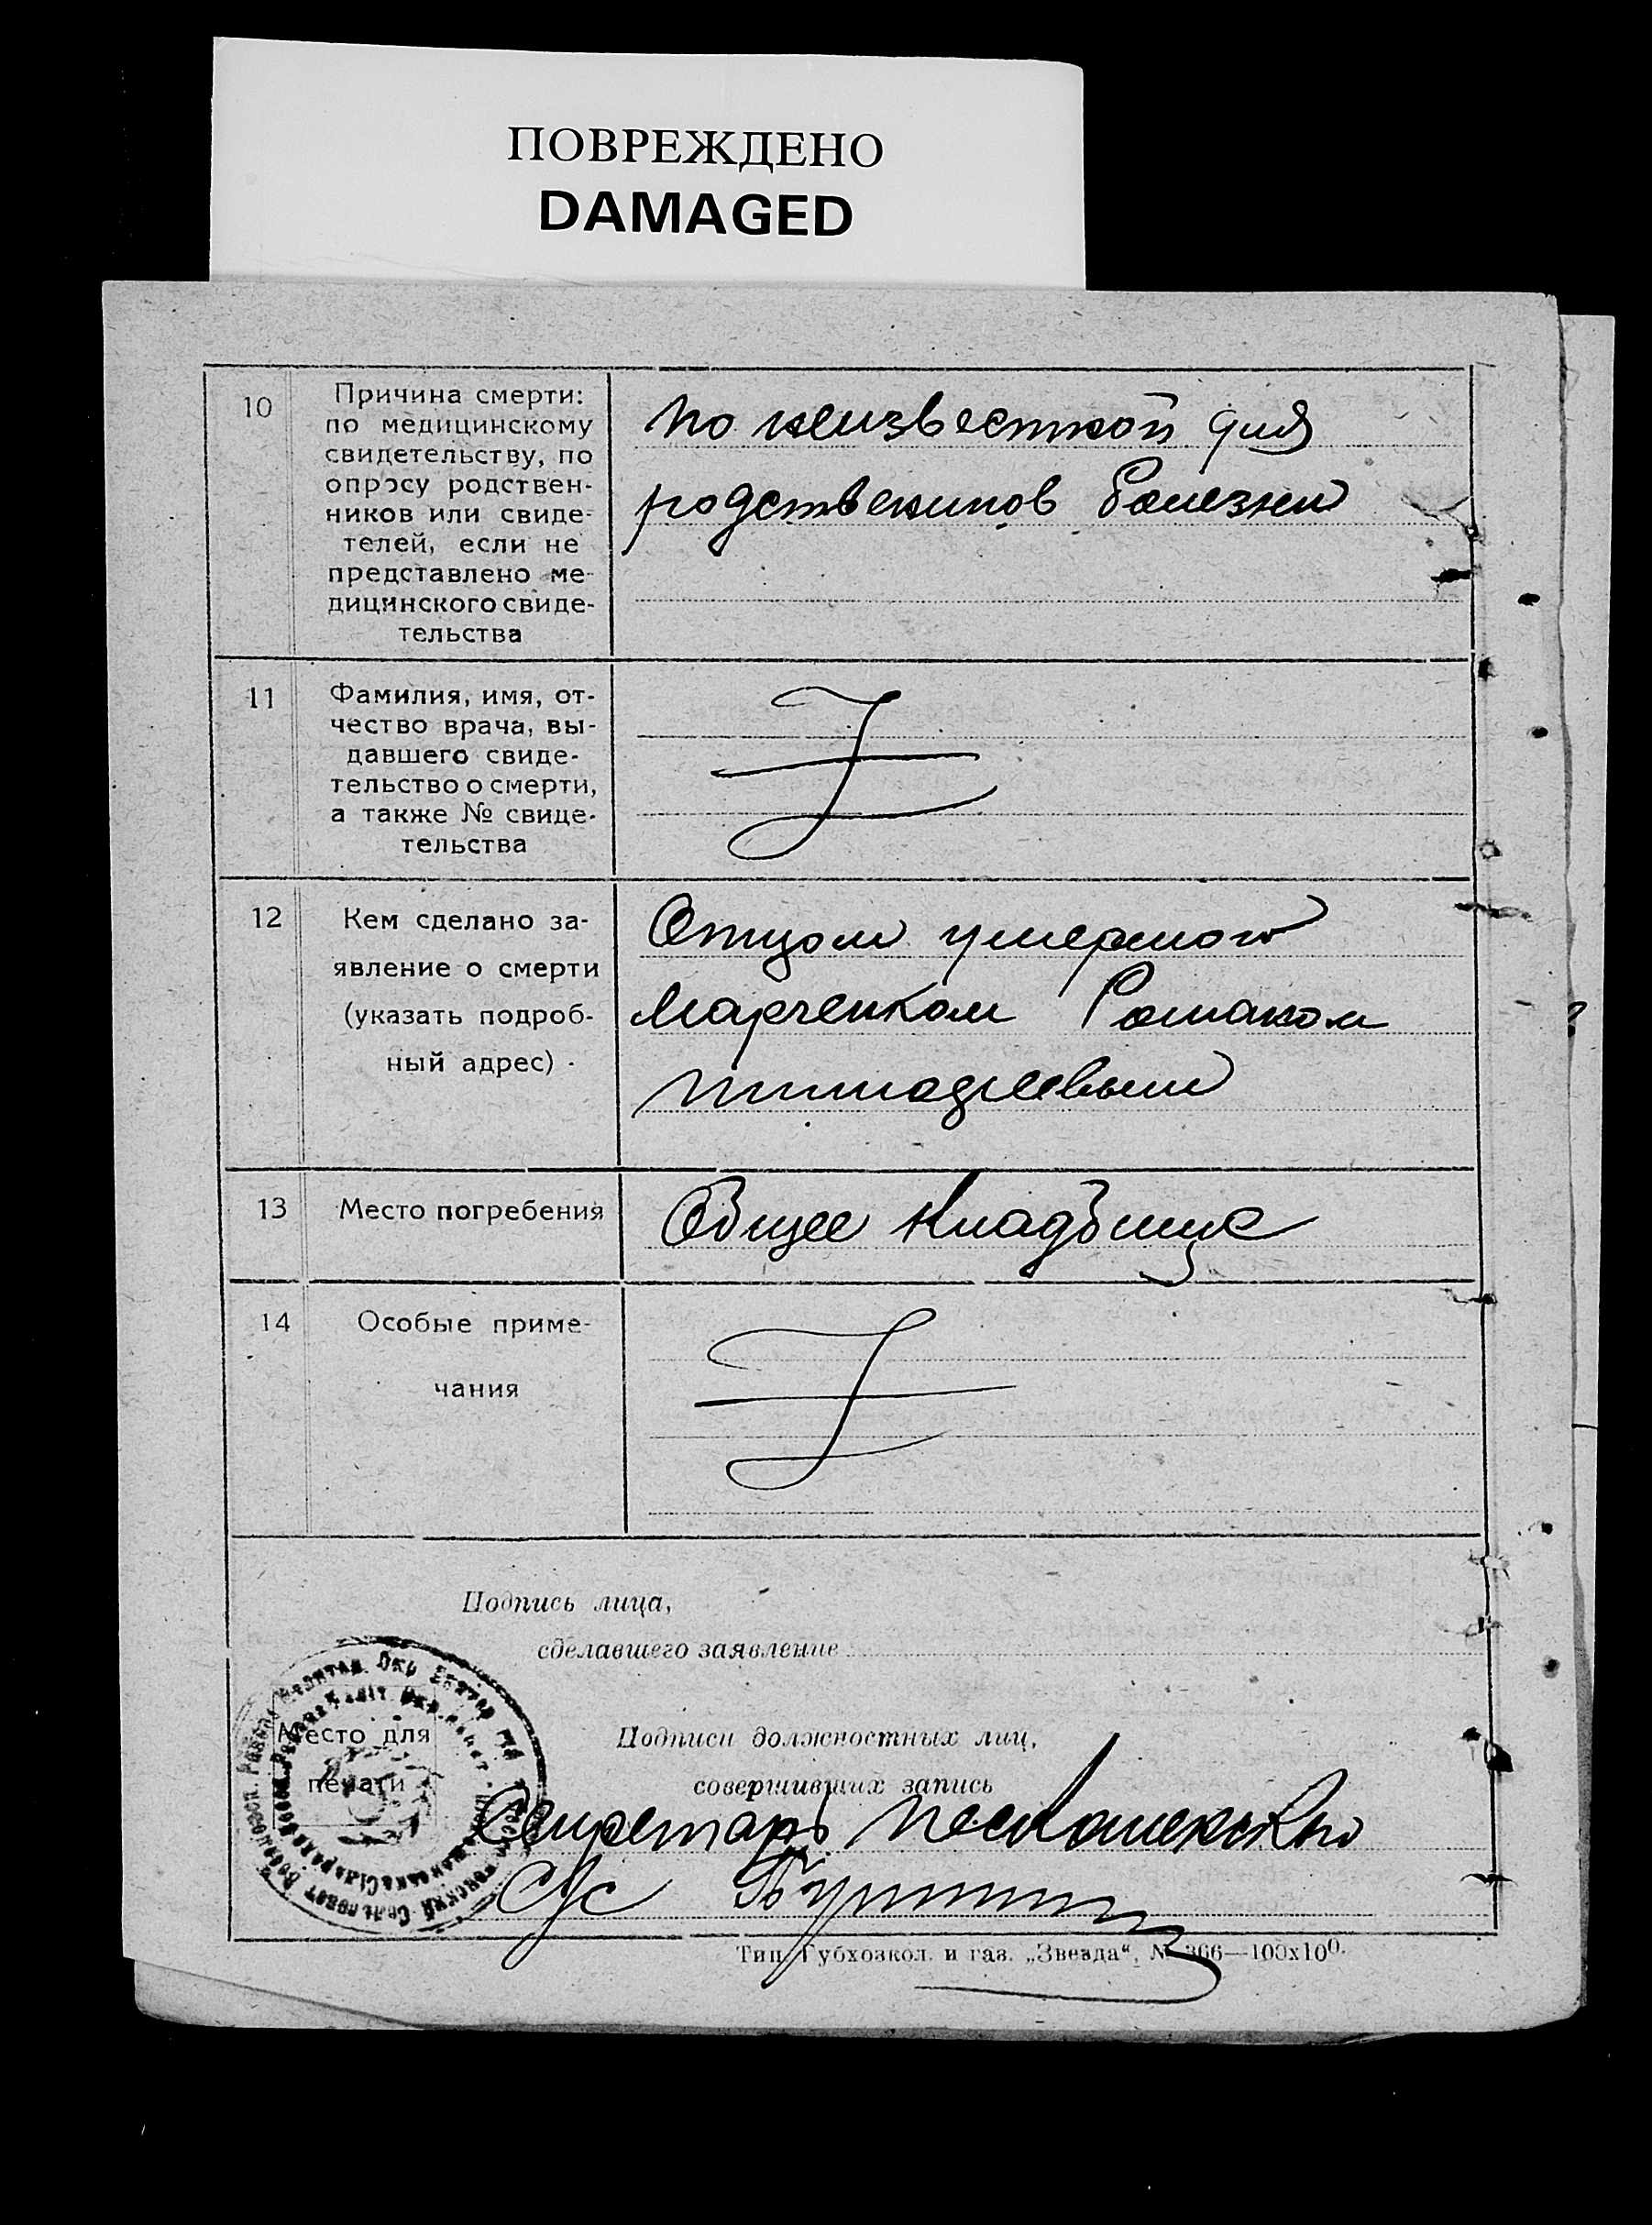 ПОВРЕЖДЕНО
DAMAGED
10
Причина смерти:
по медицинскому
свидетельству, по
опросу родствен-
ников или свиде-
телей, если не
представлено ме-
дицинского свиде-
тельства
по неизвестной для
родственников болезни
11
Фамилия, имя, от-
чество врача, вы-
давшего свиде-
тельство о смерти,
а также № свиде-
тельства
12
Кем сделано за-
явление о смерти
(указать подроб-
ный адрес) -
Отцом умершого
Марченком Романом
13
Место погребения
Общее кладбище
14
Особые приме-
чания
Подпись лица,
сделавшего заявление
Место для
печати
Подписи должностных лиц,
совершивших запись
Секретарь
С/с
Тип. Губхозкол. и газ. „Звезда“, № 366—100х100.